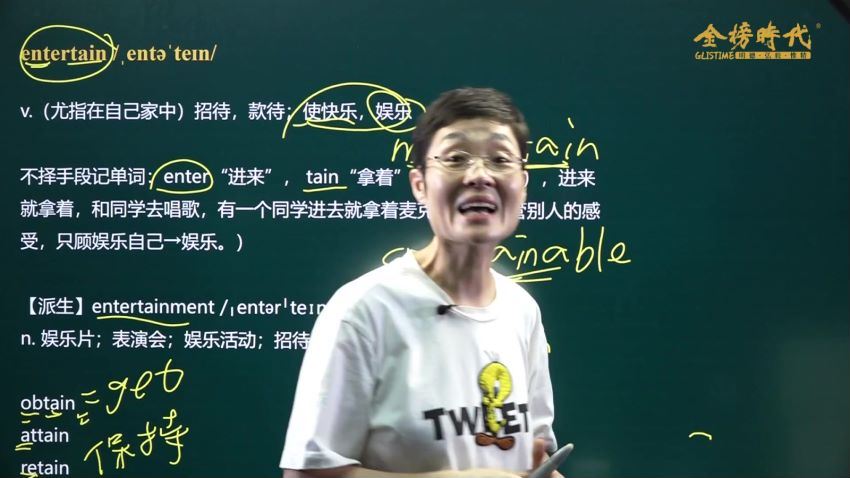 entertain /ˌentəˈteɪn/
金榜時代®
GLISTIME 明德·弘毅·惟精
v.（尤指在自己家中）招待，款待；使快乐，娱乐
ain
不择手段记单词：enter“进来”，tain“拿着” ，进来
就拿着，和同学去唱歌，有一个同学进去就拿着麦 别人的感
受，只顾娱乐自己→娱乐。）
ainable
【派生】entertainment /ˌentərˈteɪn
n. 娱乐片；表演会；娱乐活动；招待
obtain = get
attain
retain 保持
TWEET